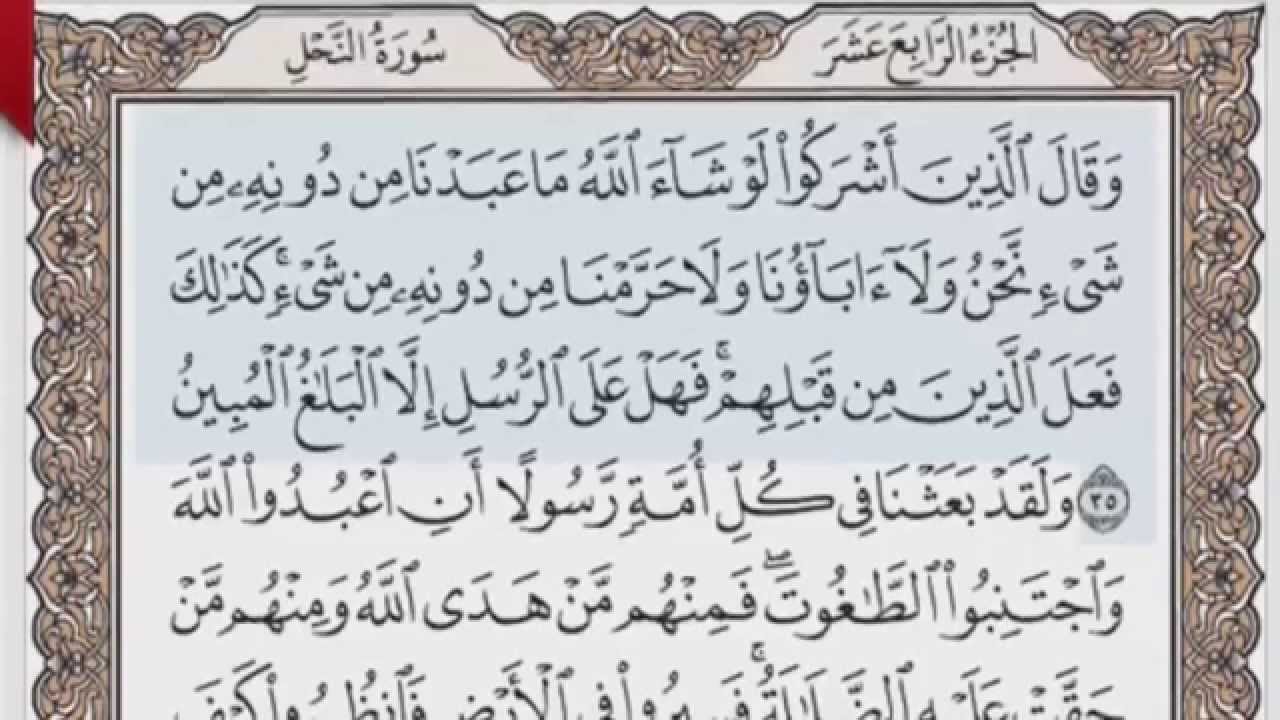 الجزء الرابع عشر
سورة النحل
وَقَالَ ٱلَّذِينَ أَشْرَكُوا۟ لَوْ شَآءَ ٱللَّهُ مَا عَبَدْنَا مِن دُونِهِۦ مِن
شَىْءٍ نَّحْنُ وَلَآ ءَابَآؤُنَا وَلَا حَرَّمْنَا مِن دُونِهِۦ مِن شَىْءٍ ۚ كَذَٰلِكَ
فَعَلَ ٱلَّذِينَ مِن قَبْلِهِمْ ۚ فَهَلْ عَلَى ٱلرُّسُلِ إِلَّا ٱلْبَلَٰغُ ٱلْمُبِينُ
٣٥ وَلَقَدْ بَعَثْنَا فِى كُلِّ أُمَّةٍ رَّسُولًا أَنِ ٱعْبُدُوا۟ ٱللَّهَ
وَٱجْتَنِبُوا۟ ٱلطَّٰغُوتَ ۖ فَمِنْهُم مَّنْ هَدَى ٱللَّهُ وَمِنْهُم مَّنْ
حَقَّتْ عَلَيْهِ ٱلضَّلَٰلَةُ ۚ فَسِيرُوا۟ فِى ٱلْأَرْضِ فَٱنظُرُوا۟ كَيْفَ